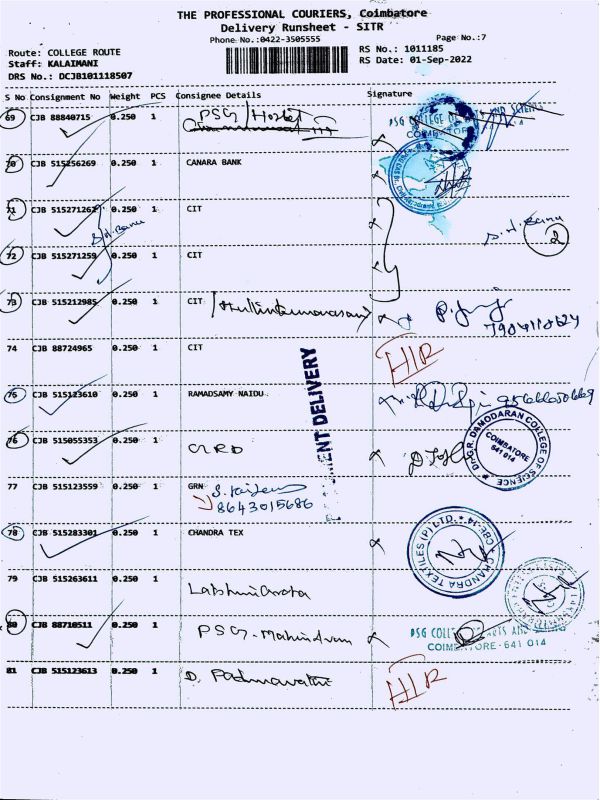 THE PROFESSIONAL COURIERS, Coimbatore
Delivery Runsheet - SITR
Phone No.:0422-3505555
Page No.:7
Route: COLLEGE ROUTE
RS No.: 1011185
Staff: KALAIMANI
RS Date: 01-Sep-2022
DRS No.: DCJB101118507
S No Consignment No Weight PCS Consignee Details Signature
69 CJB 88840715 0.250 1 PSG/Hostel
PSG COLLEGE OF ARTS AND SCIENCE
COIMBATORE
70 CJB 515256269 0.250 1 CANARA BANK
71 CJB 515271262 0.250 1 CIT
S.H.Banu
S.H.Banu
2
72 CJB 515271259 0.250 1 CIT
73 CJB 515212985 0.250 1 CIT
7904118624
74 CJB 88724965 0.250 1 CIT
75 CJB 515123610 0.250 1 RAMADSAMY NAIDU
MENT DELIVERY
76 CJB 515055353 0.250 1
Dr.G.R. DAMODARAN COLLEGE OF SCIENCE
COIMBATORE
641 014
77 CJB 515123559 0.250 1 GRN
8643015686
78 CJB 515283301 0.250 1 CHANDRA TEX
CHANDRA TEXTILES (P) LTD. CBE-14
79 CJB 515263611 0.250 1
80 CJB 88710511 0.250 1 PSG-
PSG COLLEGE OF ARTS AND
COIMBATORE-641 014
81 CJB 515123613 0.250 1 D. Padmavathi